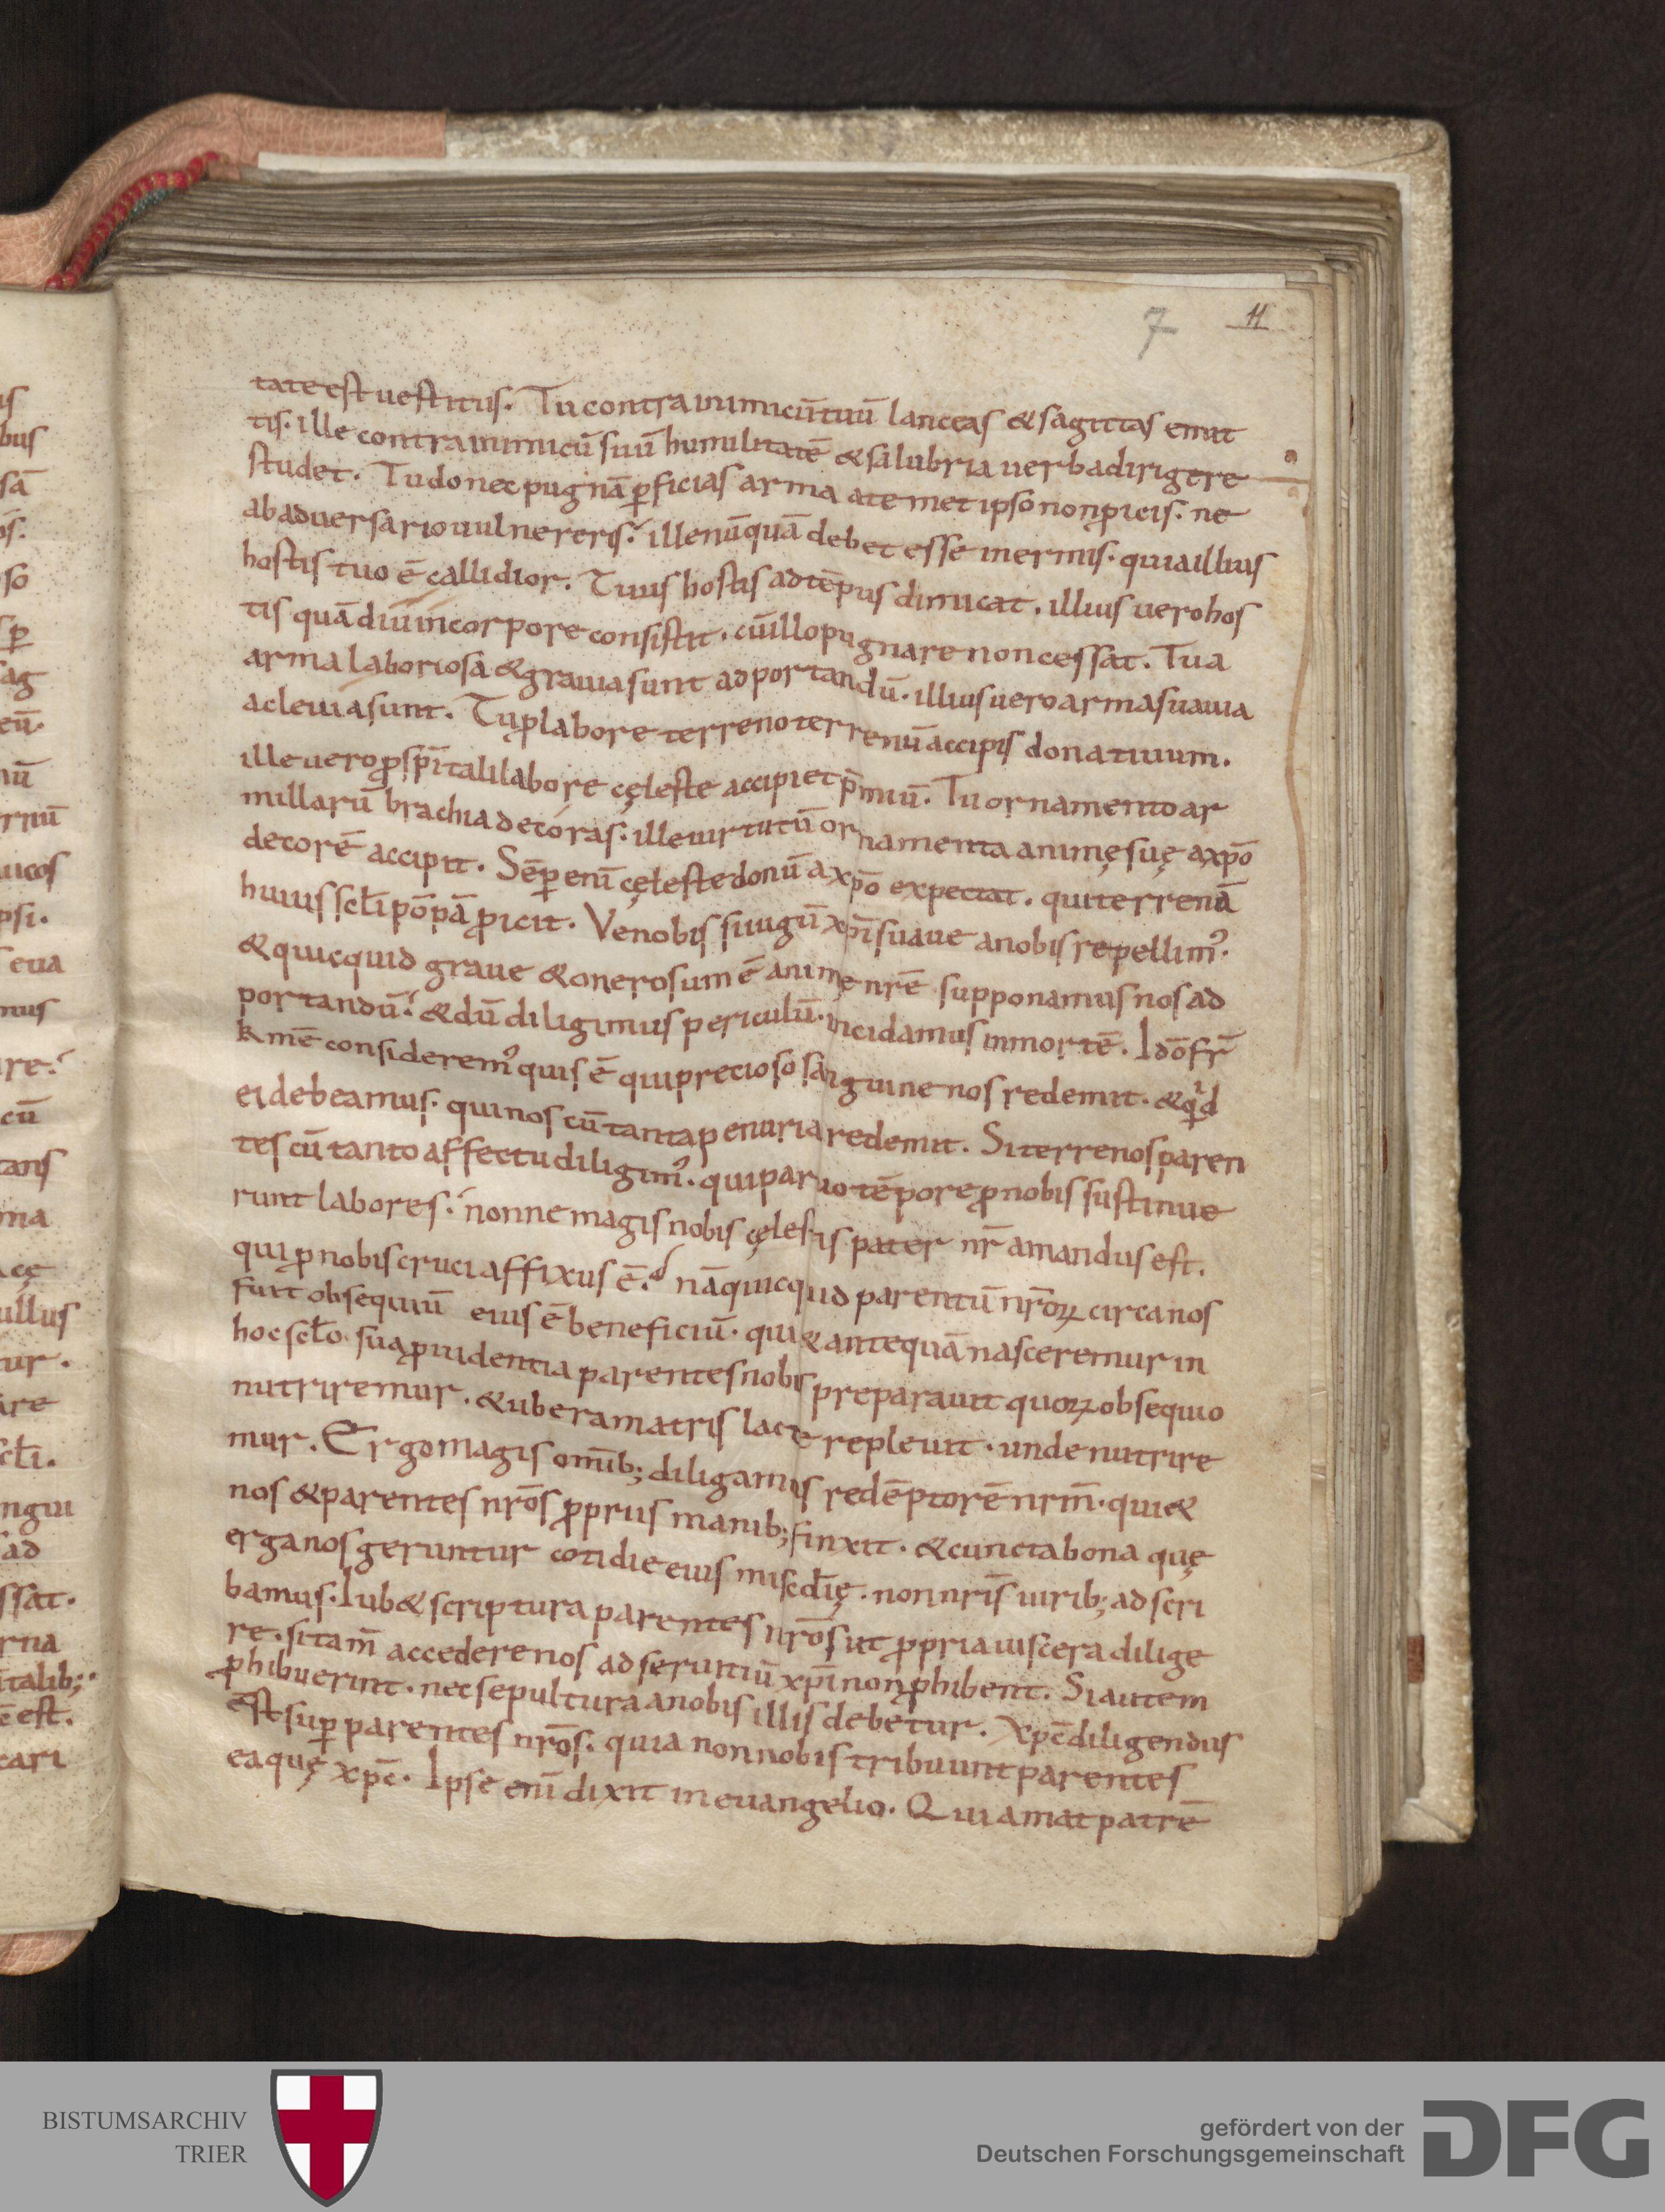 7 11
tate est uestitus. Tu contra inimicū tuū lanceas & sagittas emit
tis. ille contra inimicū suū humilitatē & salubria uerba dirigere
studet. Tu donec pugnā ꝑficias arma a temet ipso non ꝓicis. ne
ab aduersario uulnereris. ille nūquā debet esse inermis. quia illius
hostis tuo ē callidior. Tuus hostis ad tēpus dimicat. illius uero hos
tis quā diu in corpore consistit. cū illo pugnare non cessat. Tua
arma laboriosa & grauia sunt ad portandū. illius uero arma suauia
ac leuia sunt. Tu ꝓ labore terreno terrenū accipis donatiuum.
ille uero ꝓ sp̄itali labore cęleste accipiet p̄miū. Tu ornamento ar
millarū brachia decoras. ille uirtutū ornamenta animę suę a xp̄o
decorē accipit. Sēꝑ enī cęleste donū a xp̄o expectat. qui terrenā
huius scłi pōpā ꝓicit. Ve nobis si iugū xp̄i suaue a nobis repellim᾿.
& quicquid graue & onerosum ē animę nrē supponamus nos ad
portandū. & dū diligimus periculū. incidamus in mortē. Idō fr̄
k̅mē considerem᾿ quis ē qui precioso sanguine nos redemit. & qͥd
ei debeamus. qui nos cū tanta penuria redemit. Si terrenos paren
tes cū tanto affectu diligim᾿. qui paruo tēpore ꝓ nobis sustinue
runt labores. nonne magis nobis cęlestis pater nr̄ amandus est.
qui ꝓ nobis cruci affixus ē. nā quicquid parentū nr̄oꝝ circa nos
fuit obsequiū eius ē beneficiū. qui & antequā nasceremur in
hoc scło sua ꝓuidentia parentes nobis preparauit quoꝝ obsequio
nutriremur. & ubera matris lacte repleuit. unde nutrire
mur. Ergo magis omīb; diligamus redēptorē nrm̄. qui &
nos & parentes nr̄os ꝓpriis manib; finxit. & cuncta bona quę
erga nos geruntur cotidie eius miscd̄ię. non nrīs uirib; adscri
bamus. Iub& scriptura parentes nr̄os ut ꝓpria uiscera dilige
re. si tam̄ accedere nos ad seruitiū xp̄i non ꝓhibent. Si autem
ꝓhibuerint. nec sepultura a nobis illis debetur. Xp̄c diligendus
est suꝑ parentes nr̄os. quia non nobis tribuunt parentes
ea quę xp̄c. Ipse enī dixit in euangelio. Qui amat patrē
BISTUMSARCHIV
TRIER
gefördert von der
Deutschen Forschungsgemeinschaft
DFG